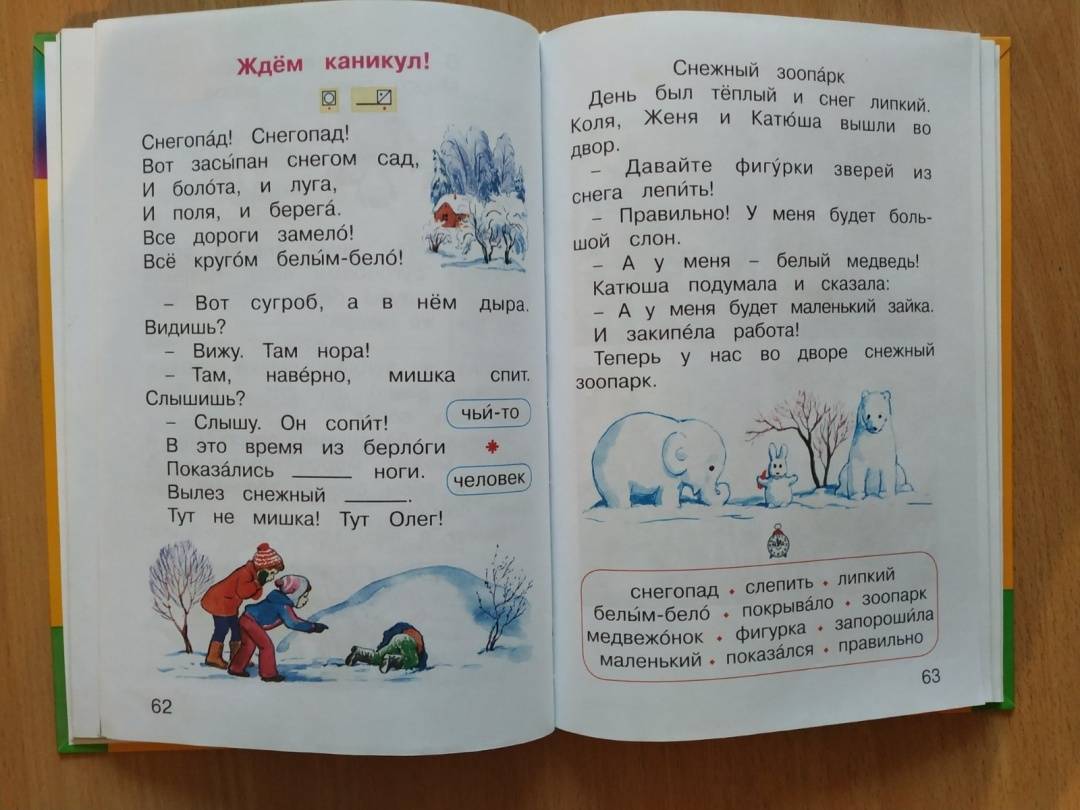 Ждём каникул!
Снегопа́д! Снегопад!
Вот засы́пан снегом сад,
И боло́та, и луга,
И поля, и берега́.
Все дороги замело́!
Всё круго́м белы́м-бело́!
– Вот сугроб, а в нём дыра.
Видишь?
– Вижу. Там нора!
– Там, наве́рно, мишка спит.
Слышишь?
– Слышу. Он сопи́т!
В это время из берло́ги
Показа́лись ______ ноги.
Вылез снежный ______.
Тут не мишка! Тут Олег!
чьи́-то
человек
62
Снежный зоопа́рк
День был тёплый и снег липкий.
Коля, Женя и Катю́ша вышли во
двор.
– Давайте фигу́рки зверей из
снега лепи́ть!
– Правильно! У меня будет боль-
шой слон.
– А у меня – белый медведь!
Катюша подумала и сказала:
– А у меня будет маленький зайка.
И закипе́ла работа!
Теперь у нас во дворе снежный
зоопарк.
снегопад • слепить • липкий
белы́м-бело́ • покрыва́ло • зоопарк
медвежо́нок • фигурка • запороши́ла
маленький • показа́лся • правильно
63